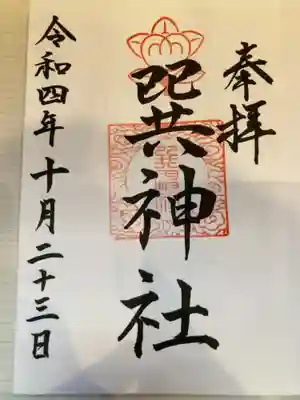 奉拝
巽神社
令和四年十月二十三日